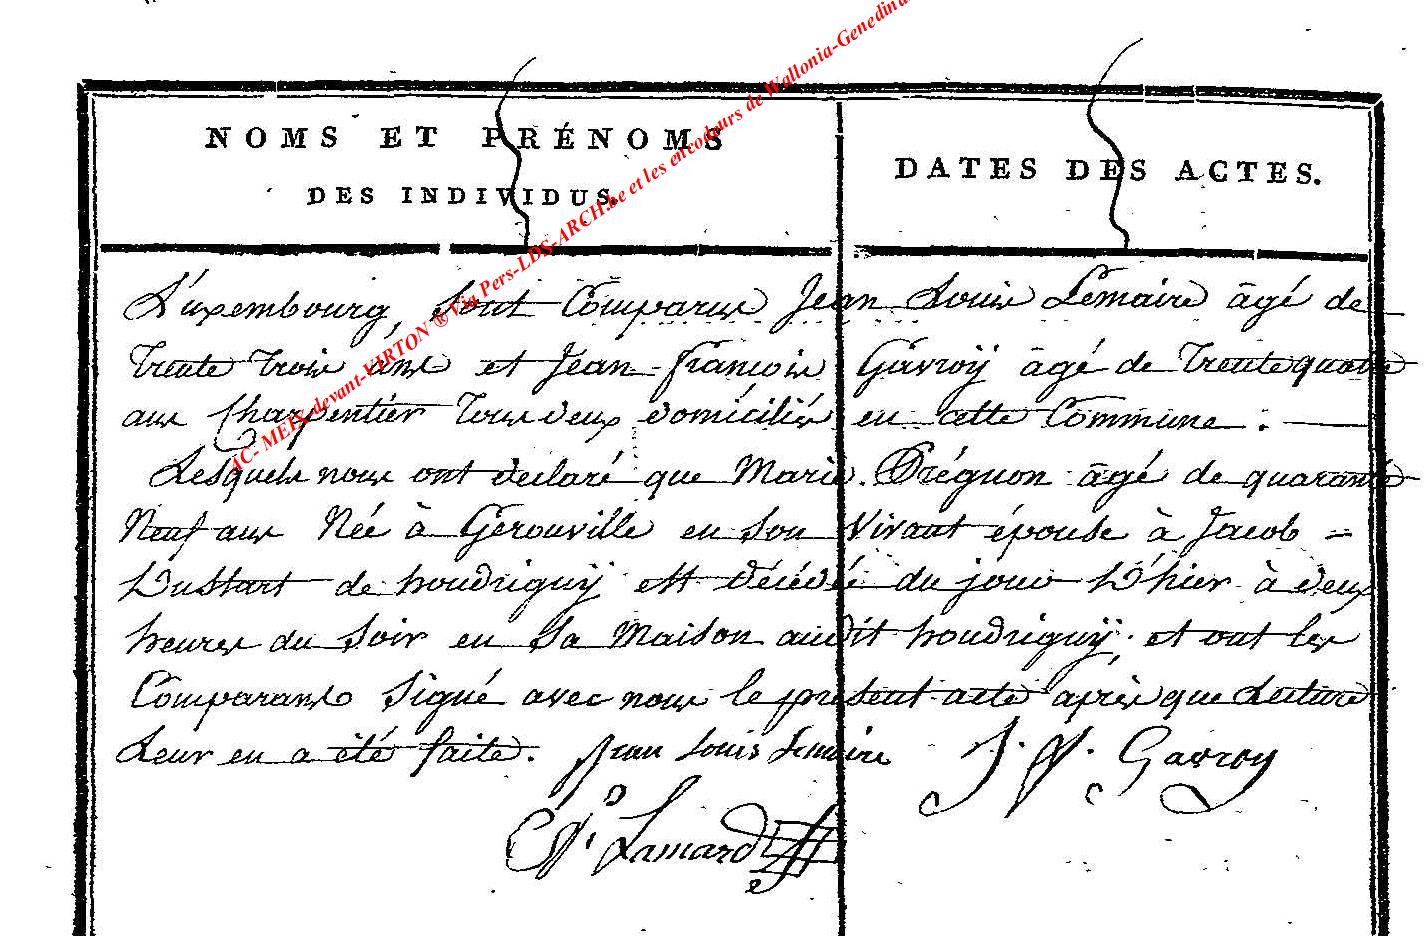 NOMS ET PRÉNOMS
DES INDIVIDUS.
DATES DES ACTES.
AC- MEIX-devant-VIRTON ® Via Pers-LDS-ARCH.be et les encodeurs de Wallonia-Genedina
Luxembourg, sont Comparus Jean Louis Lemaire âgé de
Trente Trois ans et Jean françois Gavroÿ âgé de Trente quatre
ans Charpentier Tous deux domiciliés en cette Commune.
Lesquels nous ont declaré que Marie. Trégnon âgé de quarante
Neuf ans Née à Gerouville en Son Vivant épouse à Jacob =
de houdriguÿ est décédé du jour D'hier à deux
heures du Soir en Sa Maison audit houdriguÿ; et ont les
Comparans Signé avec nous le présent acte après que Lecture
Leur en a été faite. Jean Louis Lemaire J. f. Gavroy
Lamard